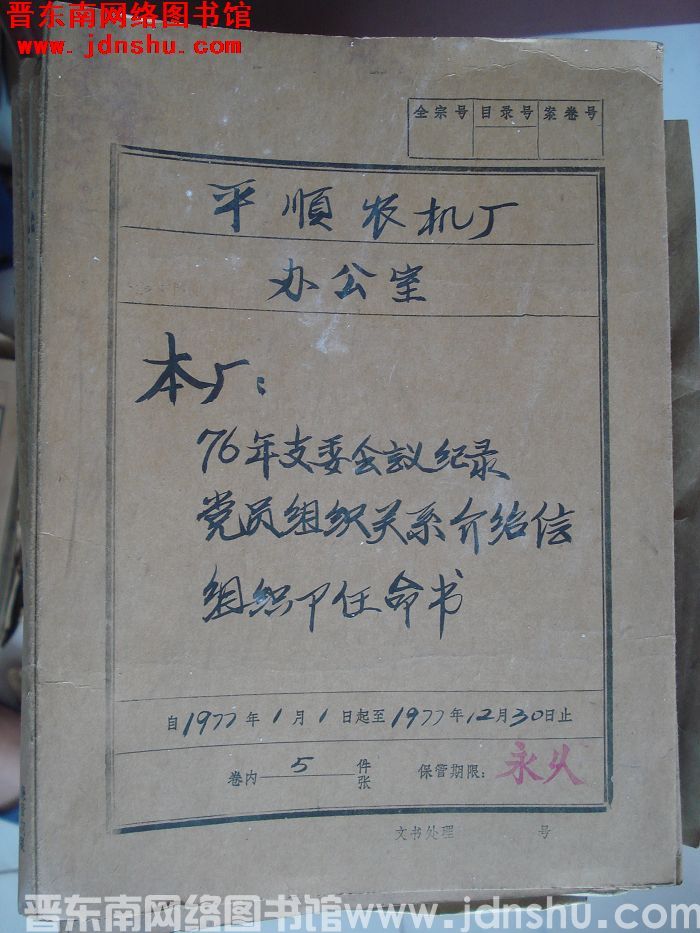 晋东南网络图书馆
www.jdnshu.com
全宗号 目录号 案卷号
平順农机厂
办公室
本厂：
76年支委会议纪录
党员组织关系介绍信
组织卩任命书
自1977年1月1日起至1977年12月30日止
卷内5件张 保管期限：永久
文书处理 号
晋东南网络图书馆 www.jdnshu.com